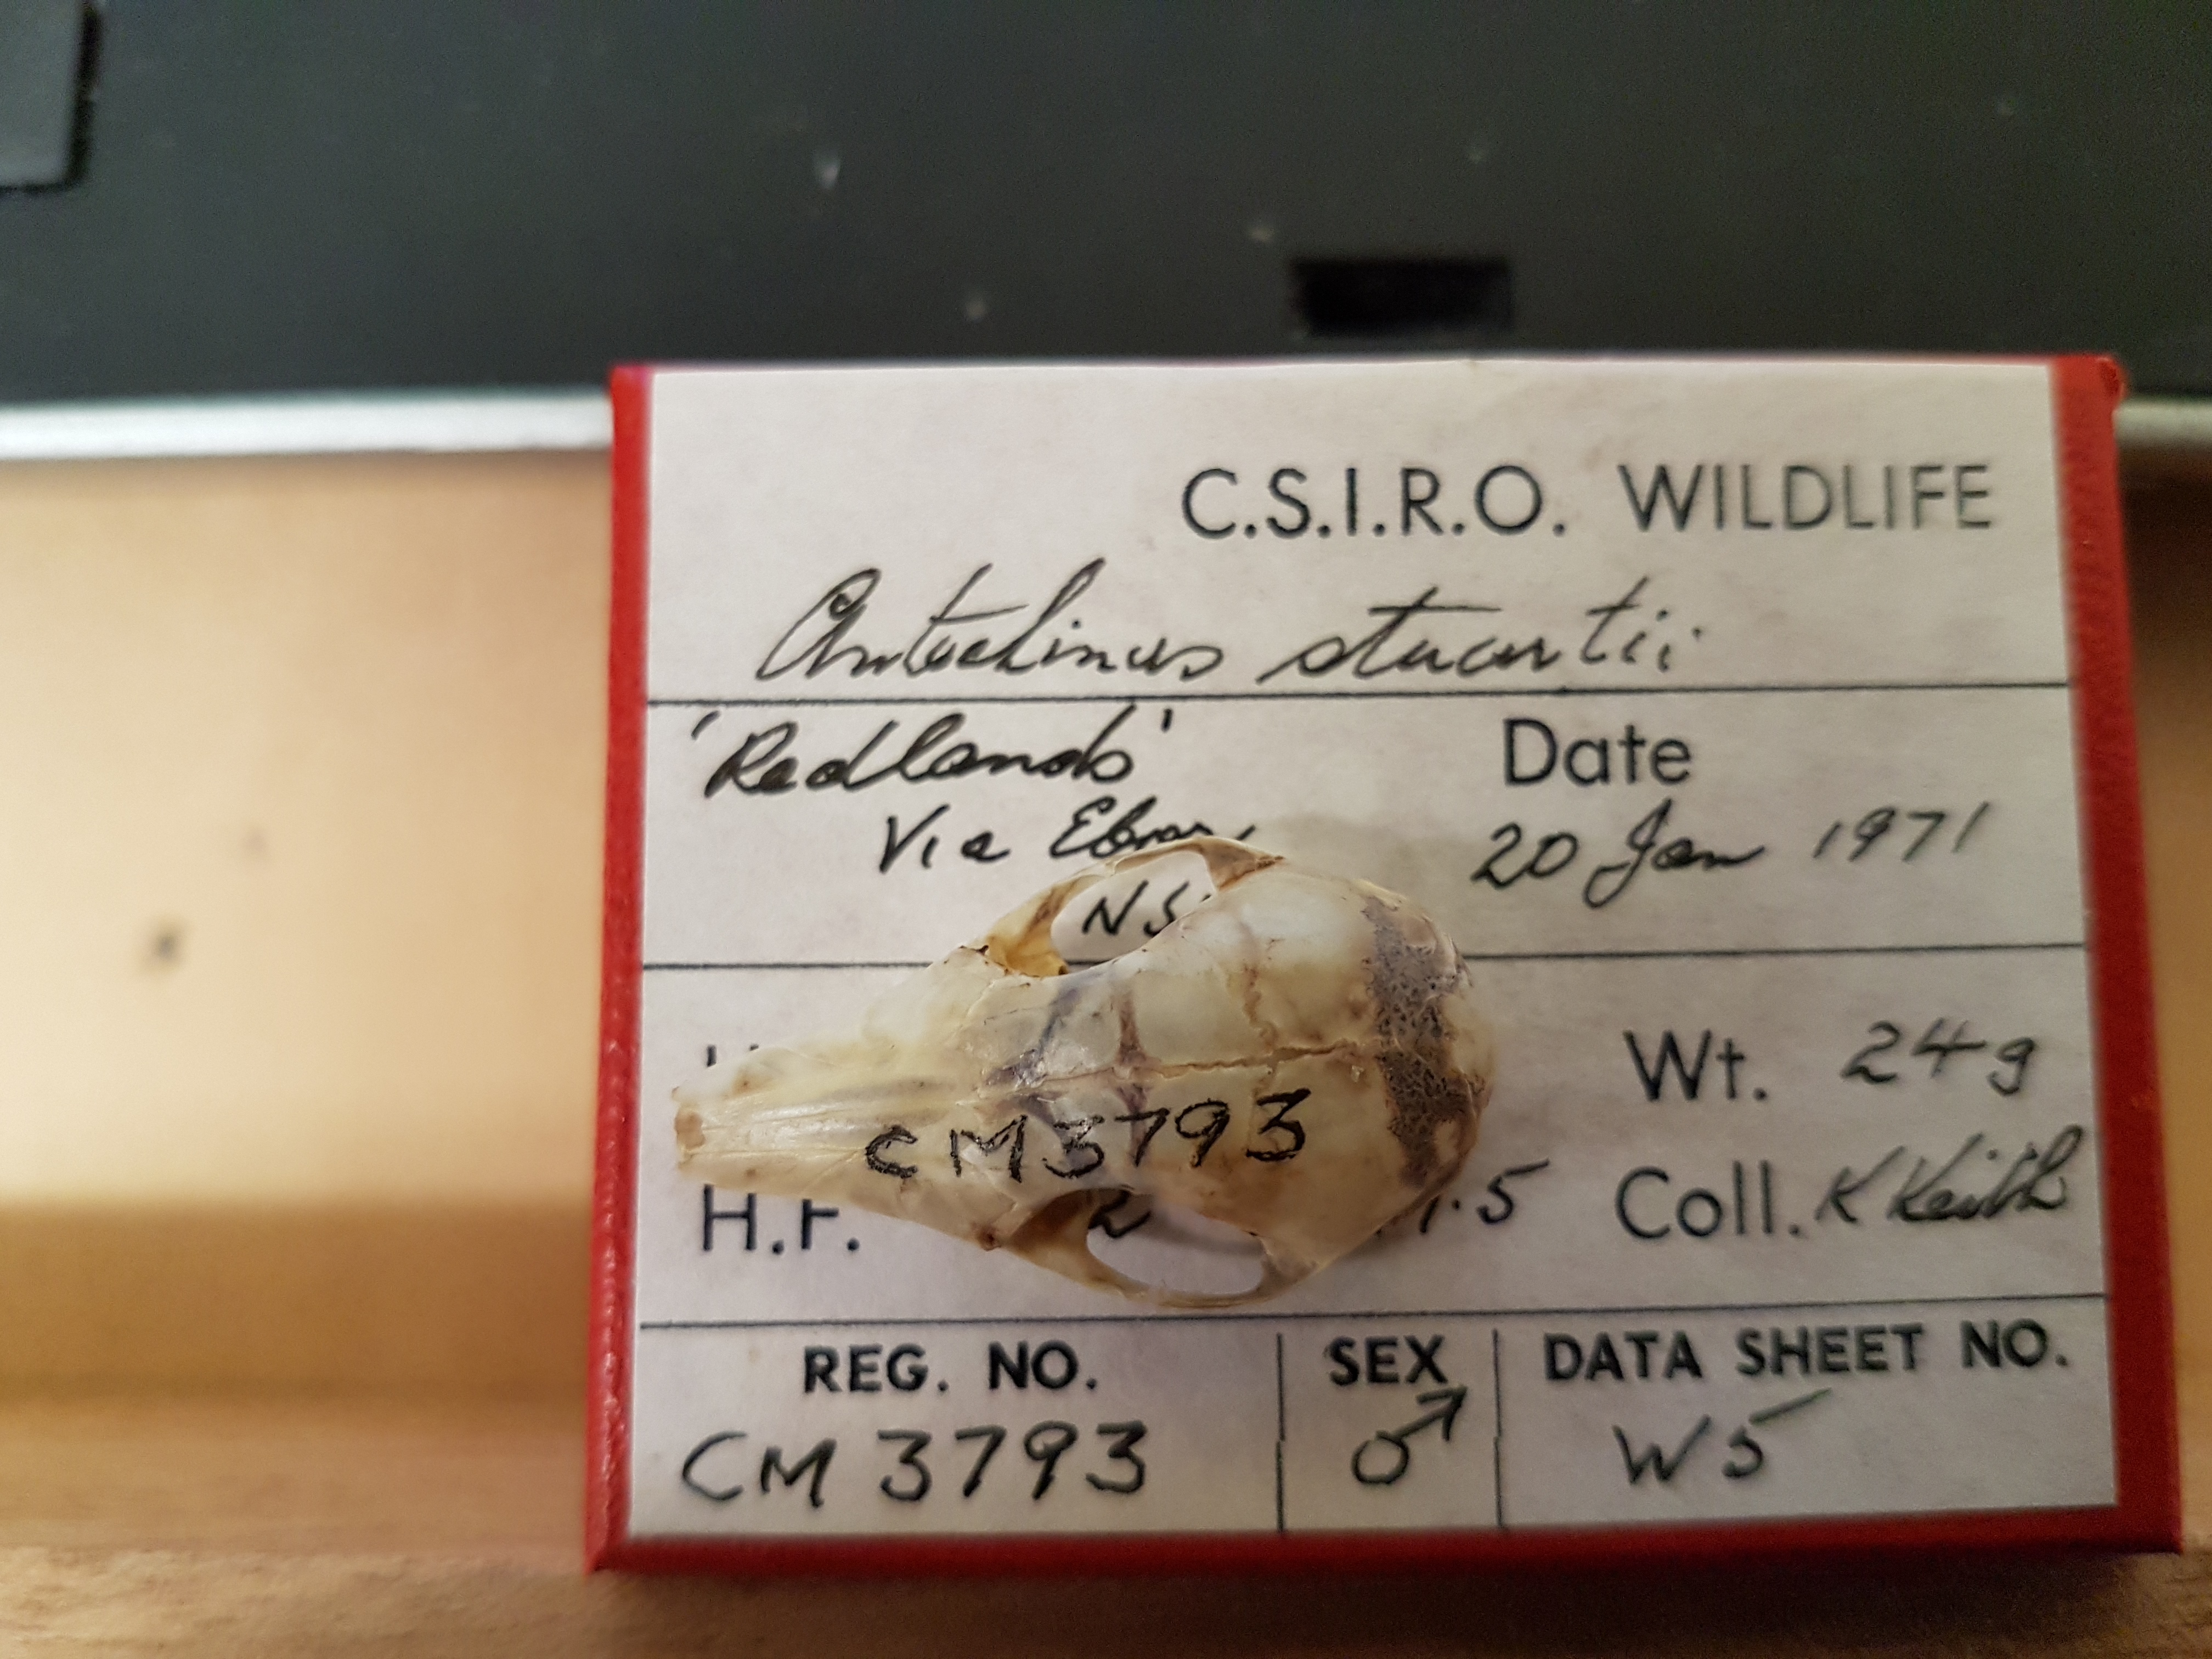 C.S.I.R.O. WILDLIFE
Antechinus stuartii
'Redlands'
Via
Date
20 Jan 1971
Wt. 24g
H.F.
.5
Coll. K Keith
REG. NO.
CM 3793
SEX
♂
DATA SHEET NO.
W5
CM3793